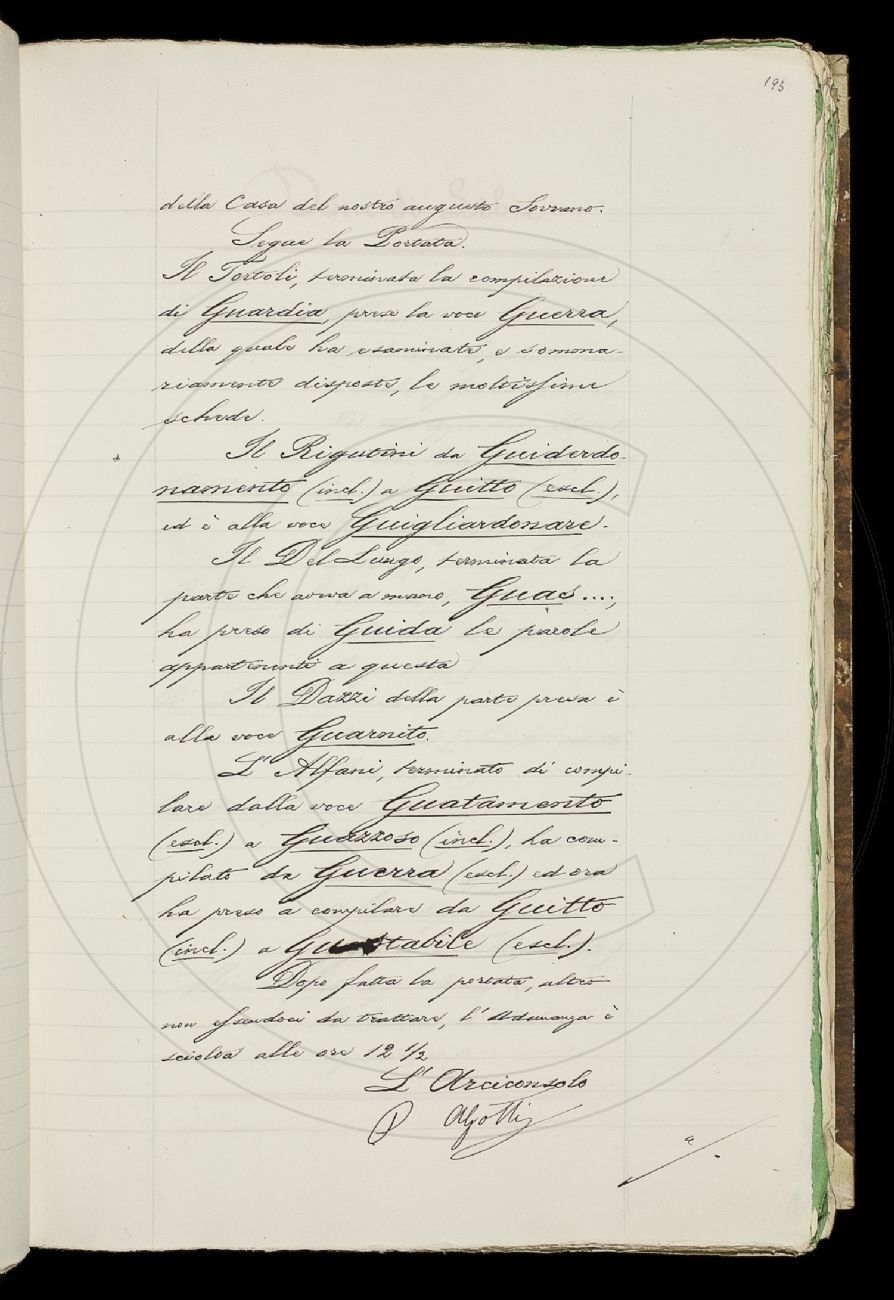 193
della Casa del nostro augusto Sovrano.
Segue la Portata.
Il Tortoli, terminata la compilazione
di Guardia, prese la voce Guerra,
della quale ha esaminate, e somma-
riamente disposte, le moltissime
schede.
Il Rigutini da Guiderdo-
namento (incl.) a Guitto (escl.),
ed è alla voce Guigliardonare.
Il Del Lungo, terminata la
parte che aveva a mano, Guas....,
ha preso di Guida le parole
appartenenti a questa
Il Dazzi della parte presa è
alla voce Guarnito.
L' Alfani, terminato di compi-
lare dalla voce Guatamento
(escl.) a Guazzoso (incl.), ha com-
pilato da Guerra (escl.) ed ora
ha preso a compilare da Guitto
(incl.) a (escl.).
Dopo fatta la portata, altro
non essendoci da trattare, l' Adunanza è
sciolta alle ore 12 1/2
L' Arciconsolo
AGotti